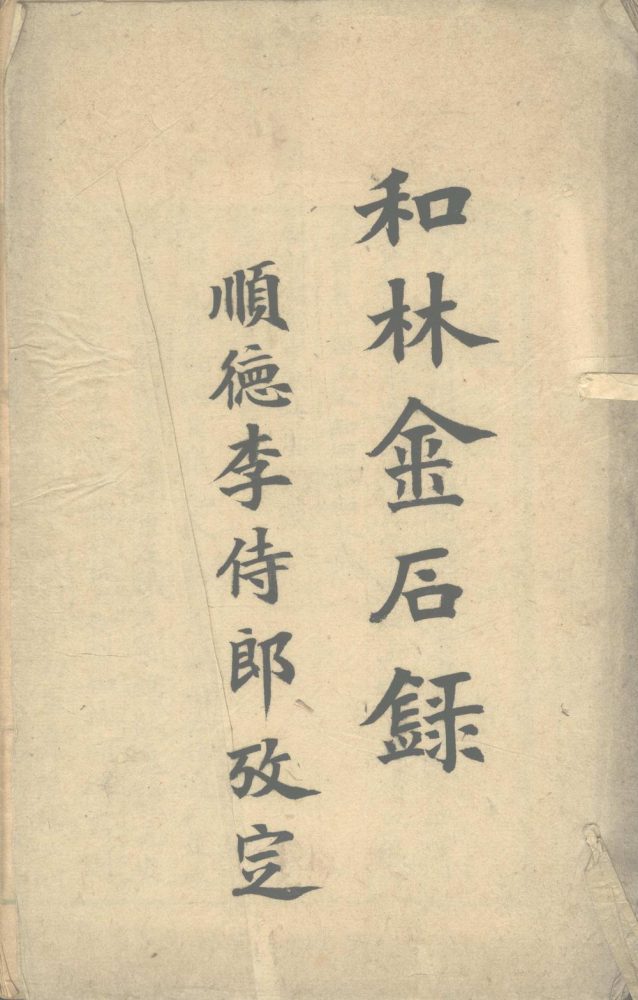 和林金石録
順徳李侍郎攷定